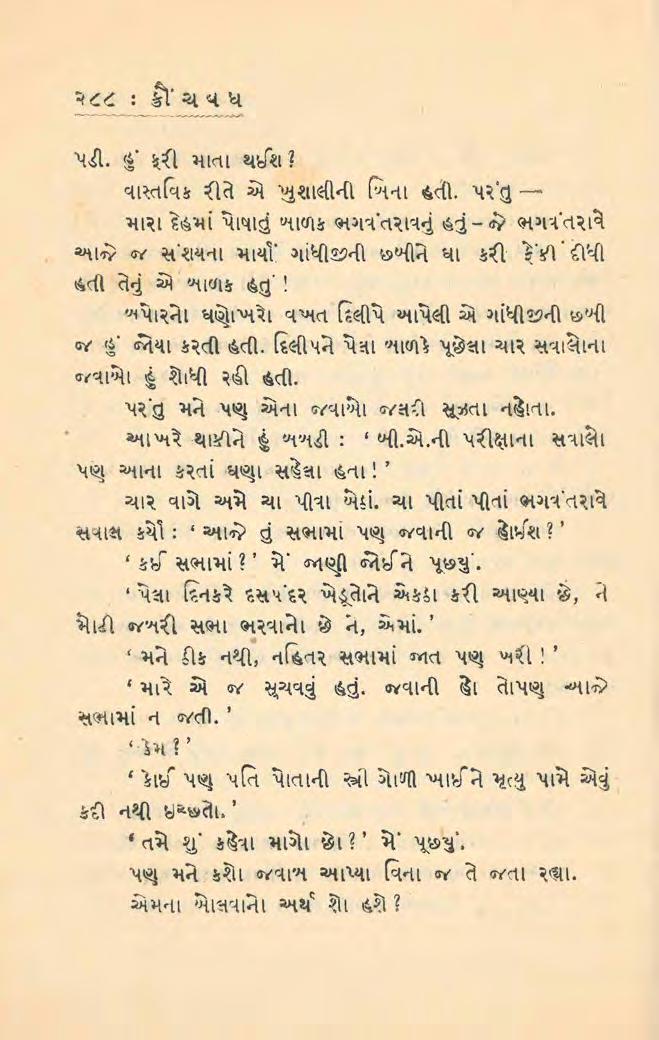 ૨૮૮ : ક્રૌંચવધ
પડી. હું ફરી માતા થઈશ ?
વાસ્તવિક રીતે એ ખુશાલીની બિના હતી. પરંતુ —
મારા દેહમાં પોષાતું બાળક ભગવંતરાવનું હતું – જે ભગવંતરાવે
આજે જ સંશયના માર્યાં ગાંધીજીની છબીને ઘા કરી ફેંકી દીધી
હતી તેનું એ બાળક હતું !
બપોરનો ઘણોખરો વખત દિલીપે આપેલી એ ગાંધીજીની છબી
જ હું જોયા કરતી હતી. દિલીપને પેલા બાળકે પૂછેલા ચાર સવાલોના
જવાબો હું શોધી રહી હતી.
પરંતુ મને પણ એના જવાબો જલદી સૂઝતા નહોતા.
આખરે થાકીને હું બબડી : ‘ બી.એ.ની પરીક્ષાના સવાલો
પણ આના કરતાં ઘણા સહેલા હતા ! ’
ચાર વાગે અમે ચા પીવા બેઠાં. ચા પીતાં પીતાં ભગવંતરાવે
સવાલ કર્યો : ‘ આજે તું સભામાં પણ જવાની જ હોઈશ ? ’
‘ કઈ સભામાં ? ’ મેં જાણી જોઈને પૂછયું.
‘ પેલા દિનકરે દસપંદર ખેડૂતોને એકઠા કરી આણ્યા છે, ને
મોટી જબરી સભા ભરવાનો છે ને, એમાં. ’
‘ મને ઠીક નથી, નહિતર સભામાં જાત પણ ખરી ! ’
‘ મારે એ જ સૂચવવું હતું. જવાની હો તોપણ આજે
સભામાં ન જતી. ’
‘ કેમ ? ’
‘ કોઈ પણ પતિ પોતાની સ્ત્રી ગોળી ખાઈને મૃત્યુ પામે એવું
કદી નથી ઇચ્છતો. ’
‘ તમે શું કહેવા માગો છો ? ’ મેં પૂછયું.
પણ મને કશો જવાબ આપ્યા વિના જ તે જતા રહ્યા.
એમના બોલવાનો અર્થ શો હશે ?